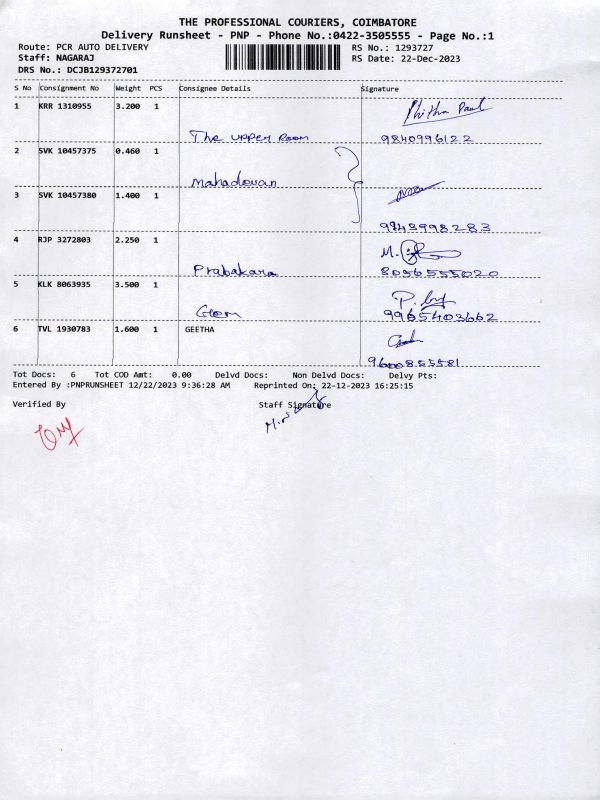 THE PROFESSIONAL COURIERS, COIMBATORE
Delivery Runsheet - PNP - Phone No.:0422-3505555 - Page No.:1
Route: PCR AUTO DELIVERY RS No.: 1293727
Staff: NAGARAJ RS Date: 22-Dec-2023
DRS No.: DCJB129372701
S No Consignment No Weight PCS Consignee Details Signature
1 KRR 1310955 3.200 1
The upper Room 9840996122
2 SVK 10457375 0.460 1
Mahadevan
3 SVK 10457380 1.400 1
9943998283
4 RJP 3272803 2.250 1
Prabakara 8056555020
5 KLK 8063935 3.500 1
9965403662
6 TVL 1930783 1.600 1 GEETHA
9600855581
Tot Docs: 6 Tot COD Amt: 0.00 Delvd Docs: Non Delvd Docs: Delvy Pts:
Entered By :PNPRUNSHEET 12/22/2023 9:36:28 AM Reprinted On: 22-12-2023 16:25:15
Verified By Staff Signature